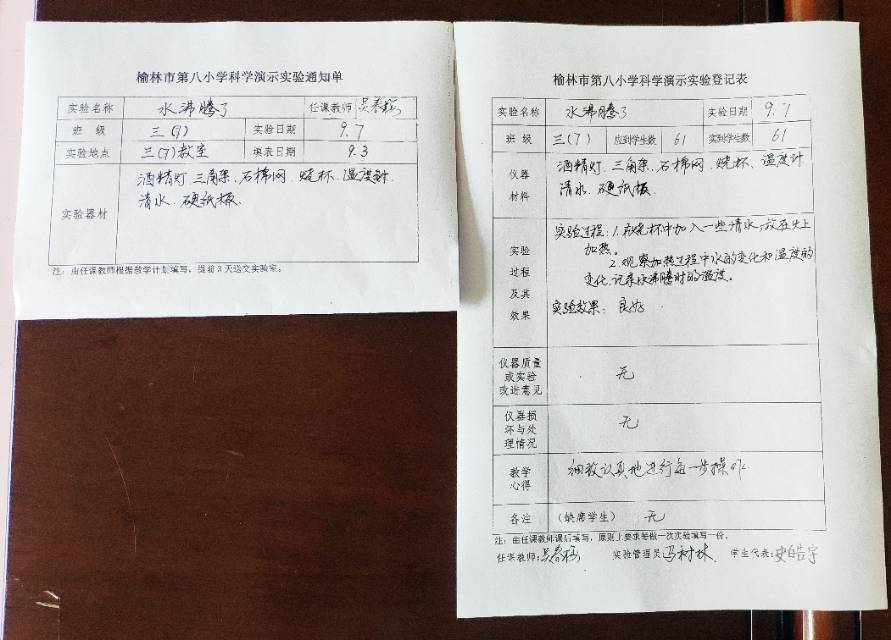 榆林市第八小学科学演示实验通知单
实验名称 水沸腾了 任课教师
班 级 三(7) 实验日期 9.7
实验地点 三(7)教室 填表日期 9.3
实验器材 酒精灯.三角架.石棉网.烧杯.温度计.
清水.硬纸板.
注:由任课教师根据教学计划填写,提前3天送交实验室。
榆林市第八小学科学演示实验登记表
实验名称 水沸腾了 实验日期 9.7
班 级 三(7) 应到学生数 61 实到学生数 61
仪器材料 酒精灯.三角架.石棉网.烧杯、温度计
清水.硬纸板.
实验过程及其效果 实验过程:1.在烧杯中加入一些清水,放在火上
加热。
2.观察加热过程中水的变化和温度的
变化.记录水沸腾时的温度。
实验效果:良好
仪器质量或实验改进意见 无
仪器损坏与处理情况 无
教学心得 细致认真地进行每一步操作
备注 (缺席学生) 无
注:由任课教师课后填写,原则上要求每做一次实验填写一份。
任课教师: 实验管理员 冯树林 学生代表:史皓宇